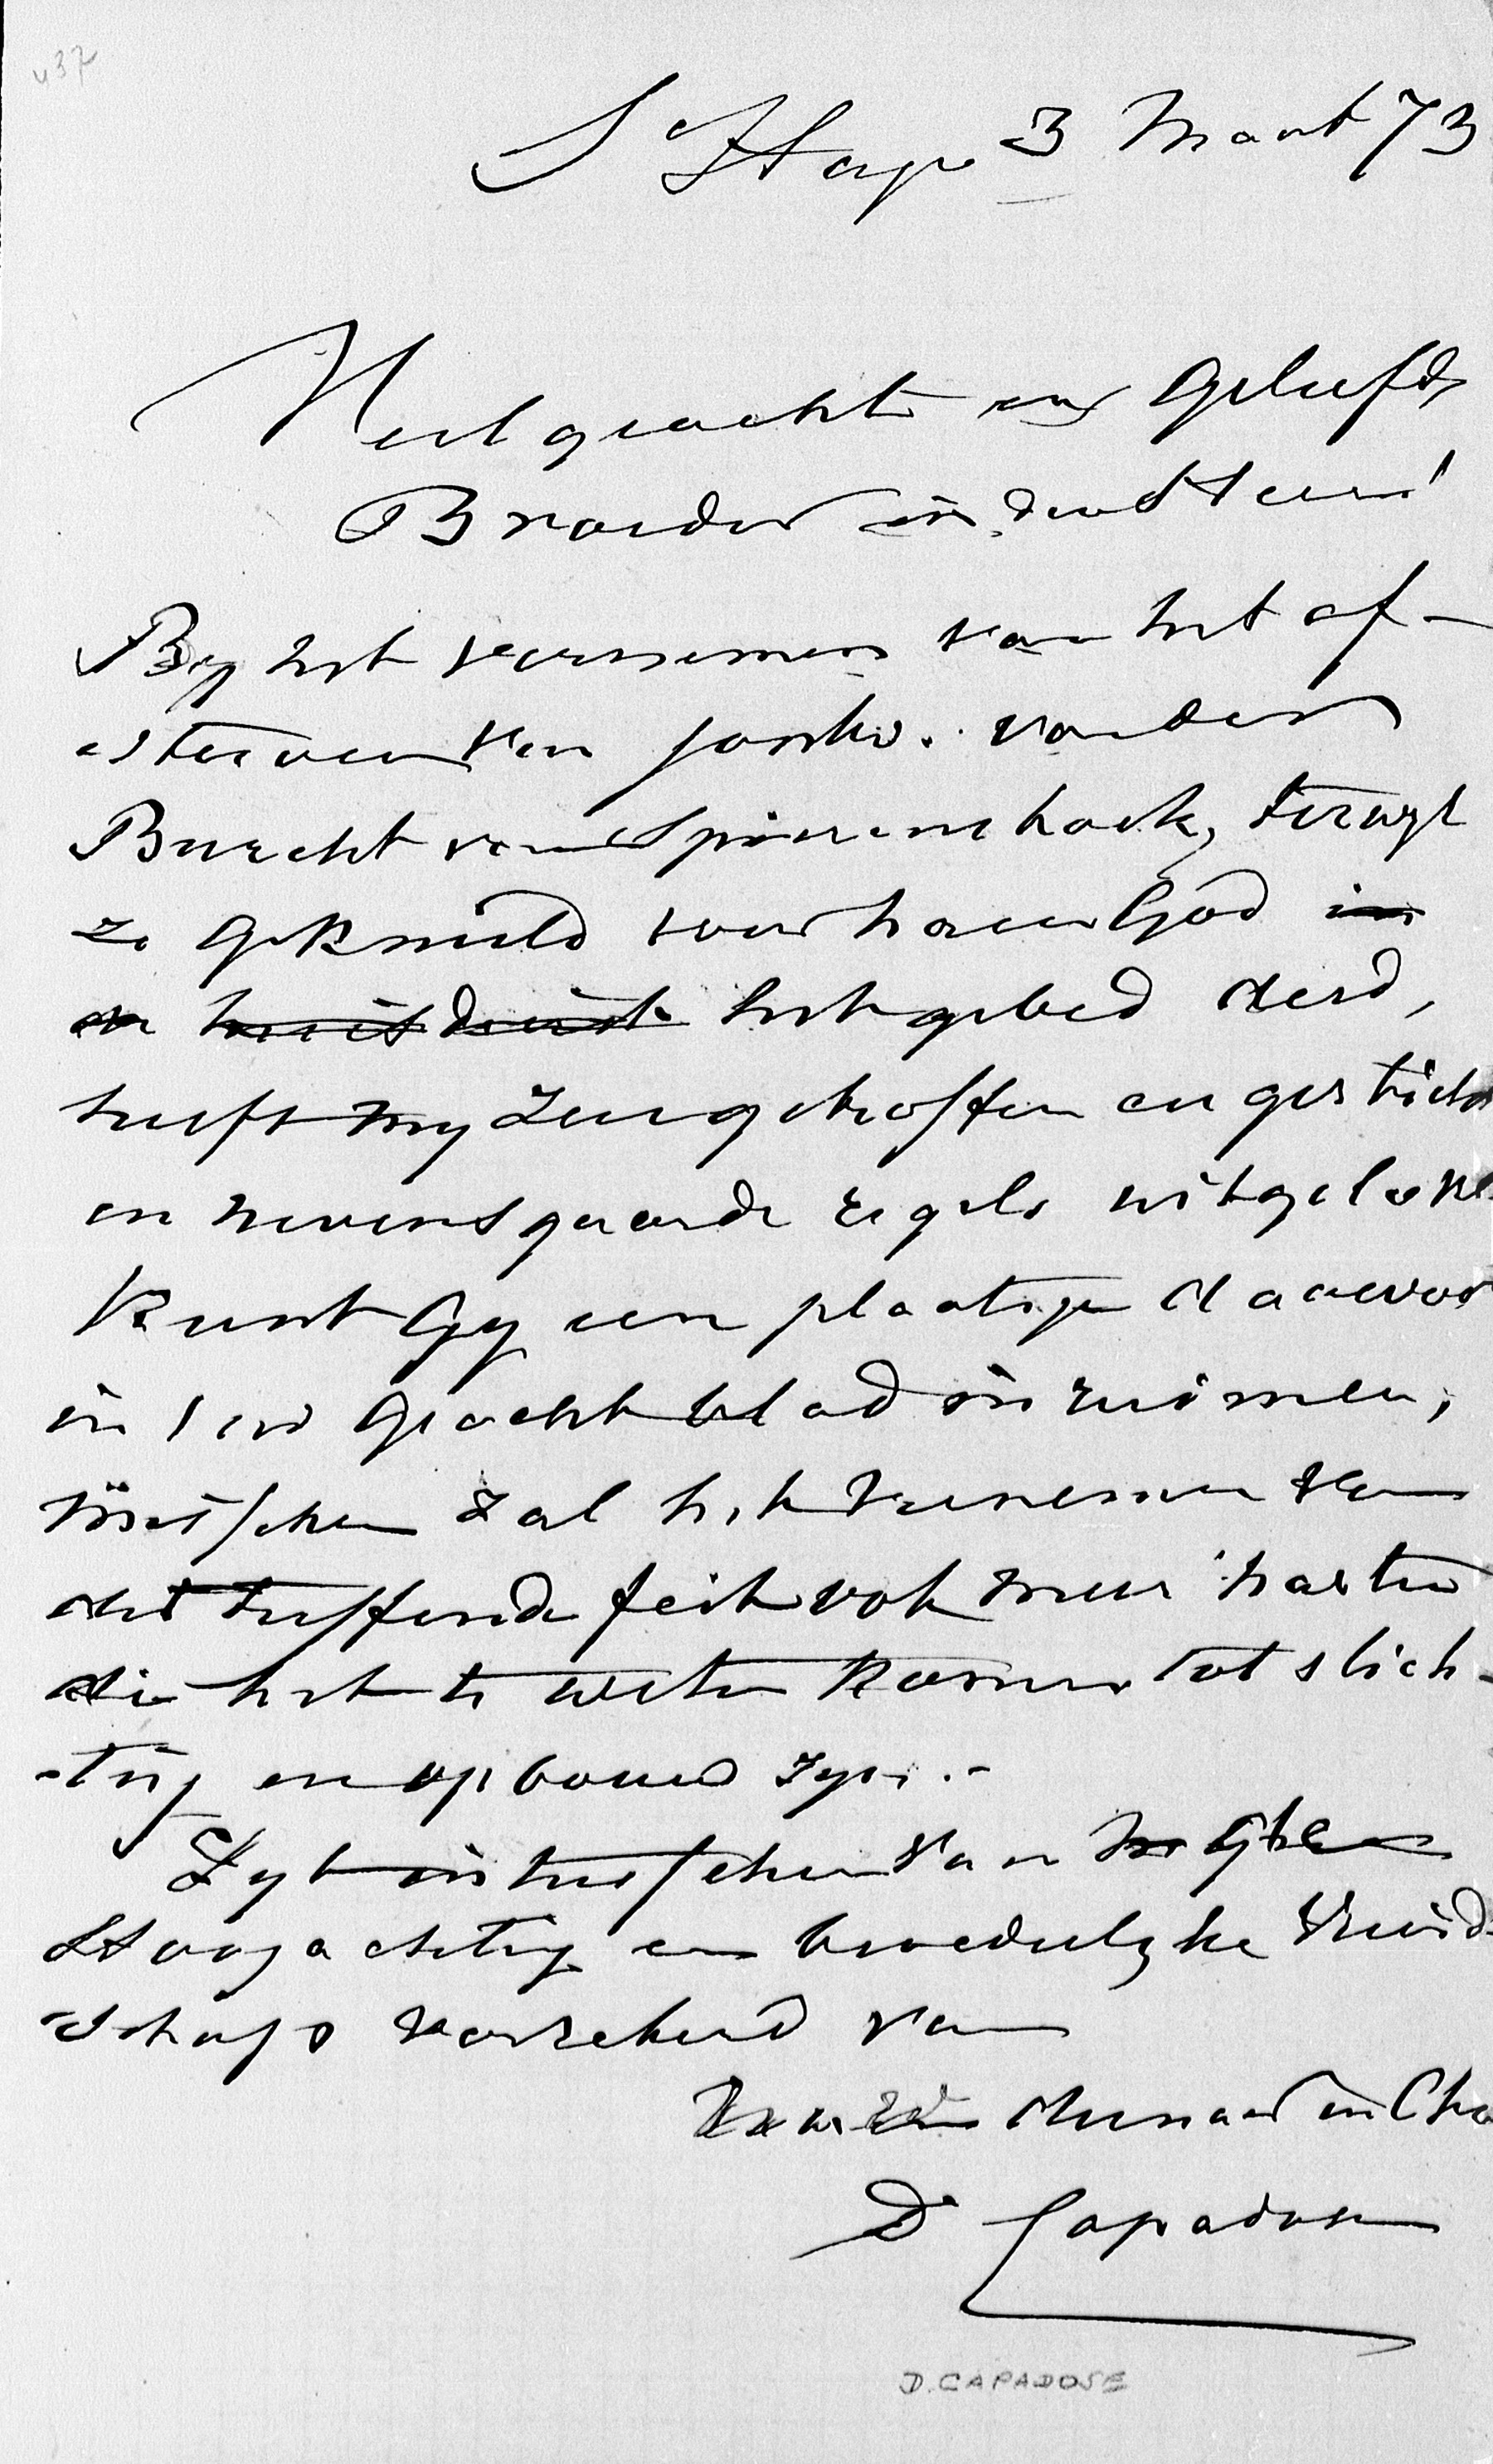 437
S Hage 3 Maart 73
Veelgeachte en Geliefde
Broeder in den Heer!
By het vernemen van het af-
sterven van Jonkvr. van der
Burcht van Spierinxhoek, terwyl
ze geknield voor haren God in
het gebed deed,
heeft my zeer getroffen en gesticht
en nevensgaande regels uitgelokt
Kunt Gy een plaatsje daarvoor
in Uw geacht blad inruimen,
misschien zal het vernemen van
dit treffende feit ook meer harten
die het te weten komen tot stich-
-ting en opbouw zyn.-
Zyt intusschen van de
Hoogachting en broederlyke vriend-
-schap verzekerd van
Uw dienaar in Chr
Dr Capadose
D. CAPADOSE